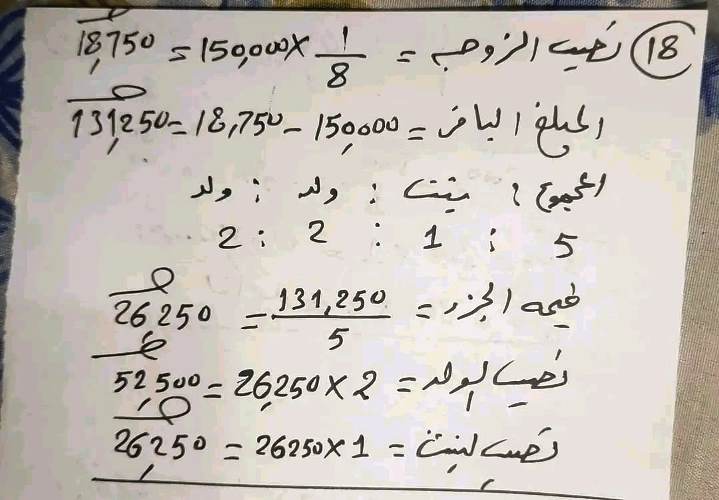 (18) نصيب الزوجه = 1/8 × 150,000 = 18,750 جـ
المبلغ الباقى = 150,000 - 18,750 = 131,250 جـ
المجموع : بنت : ولد : ولد
5 : 1 : 2 : 2
قيمه الجزء = 131,250/5 = 26,250 جـ
نصيب الولد = 2 × 26,250 = 52,500 جـ
نصيب البنت = 1 × 26250 = 26,250 جـ